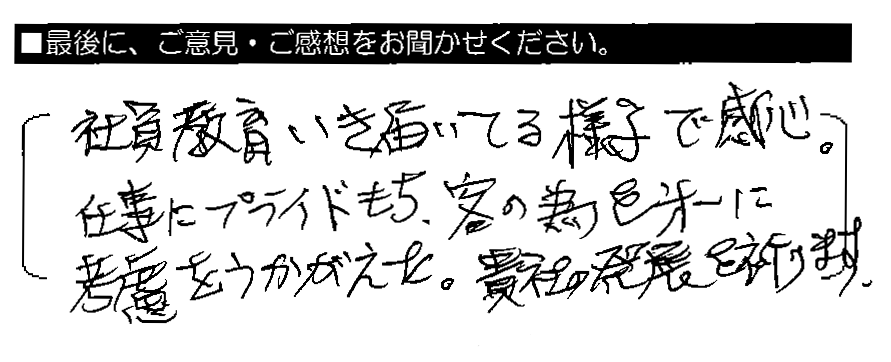 ■最後に、ご意見・ご感想をお聞かせください。
社員教育いき届いてる様子で感心。
仕事にプライドもち、客の為を第一に
考慮をうかがえた。貴社の発展を祈ります。